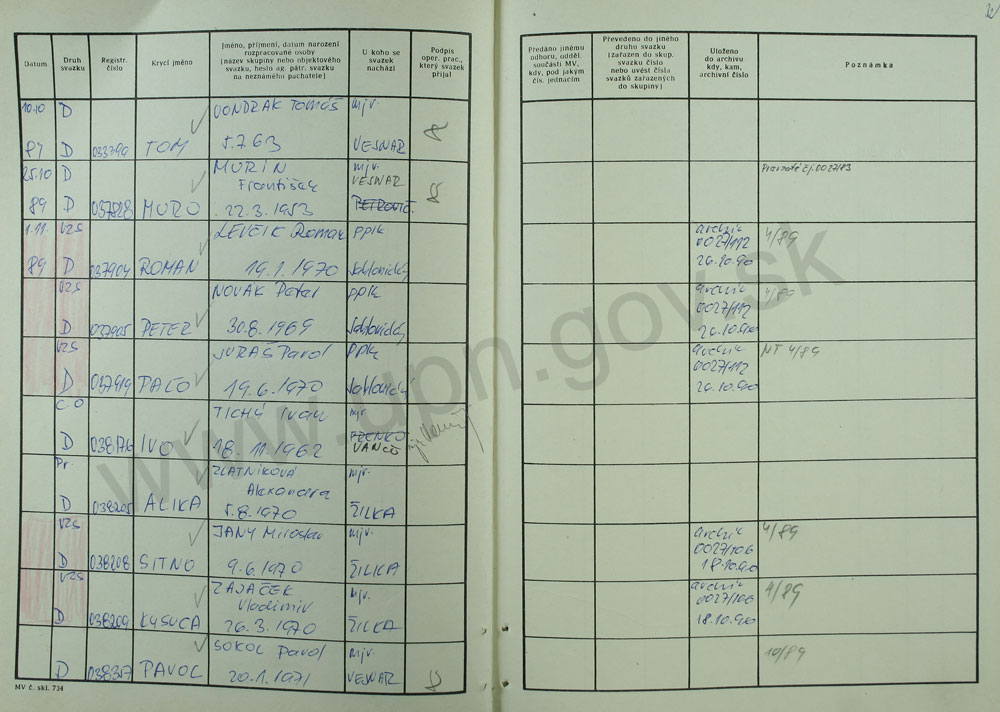 Datum
Druh svazku
Registr. číslo
Krycí jméno
Jméno, příjmení, datum narození
rozpracované osoby
(název skupiny nebo objektového
svazku, heslo ag. pátr. svazku
na neznámého pachatele)
U koho se
svazek
nachází
Podpis
oper. prac.,
který svazek
přijal
Předáno jinému
odboru, odděl.
součásti MV,
kdy, pod jakým
čís. jednacím
Převedeno do jiného
druhu svazku
(zařazen do skup.
svazku číslo
nebo uvést čísla
svazků zařazených
do skupiny)
Uloženo
do archivu
kdy, kam,
archivní číslo
Poznámka
10.10 D VONDRAK Tomáš mjr.
D TOM 5.7.63 VESNAR
25.10 D MURIN mjr.
František VESNAR
89 D 037828 MURO 22.3.1953
č.j. 0027/83
1.11. VZS Roman pplk
89 D 037904 ROMAN 19.1.1970 Jablonický
archív 0027/112 26.10.90 4/89
VZS NOVÁK Peter pplk
D 037905 PETER 30.8.1969 Jablonický
archív 0027/112 26.10.90 4/89
VZS JURÁŠ Pavol pplk
D 037919 PALO 19.6.1970 Jablonický
archív 0027/112 26.10.90 NT 4/89
TICHÝ Ivan mjr.
D 038176 IVO 18.11.1962 VANCO
Pr. ZLATNÍKOVÁ mjr.
Alexandra
D 038205 ALIKA 5.8.1970 ŽILKA
VZS JANY Miroslav mjr.
D 038208 SITNO 9.6.1970 ŽILKA
archív 0027/106 18.10.90 4/89
VZS ZAJAČEK mjr.
Vladimir
D 038209 KYSUCA 26.3.1970 ŽILKA
archív 0027/106 18.10.90 4/89
SOKOL Pavol mjr.
D 038317 PAVOL 20.1.1971 VESNAR
10/89
MV č. skl. 734
www.upn.gov.sk